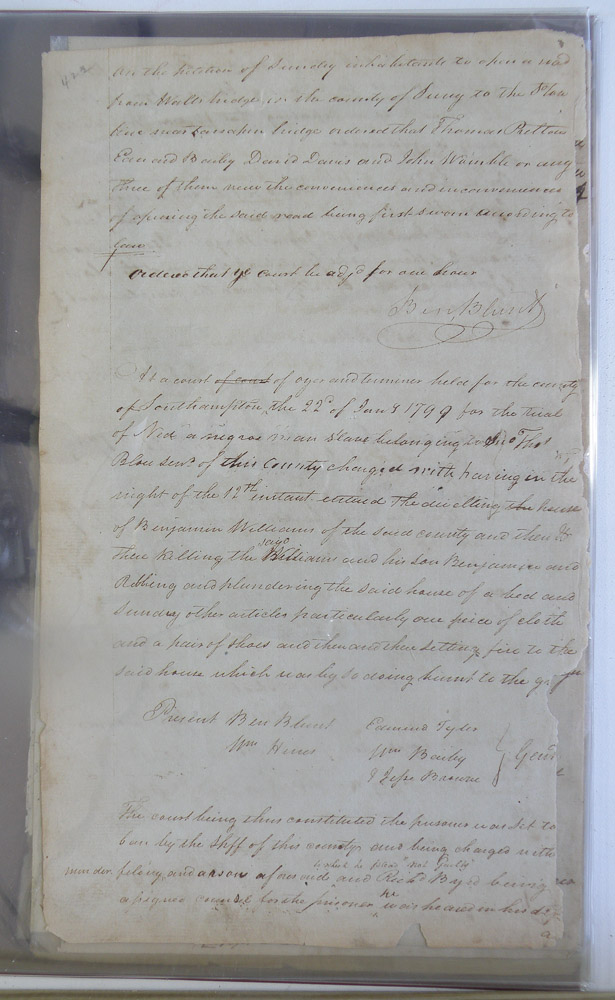 422
On the petition of Sundry inhabitants to open a road
from Halls bridge in the county of Surry to the
line near bridge ordered that Thomas Pretlow
Edmund Bailey David Davis and John Womble or any
three of them view the conveniences and inconveniences
of opening the said road being first sworn according to
Law.
ordered that ye court be adjd for one hour
Ben Blunt
At a court of court of oyer and terminer held for the county
of Southampton the 22d of Jany 1799 for the trial
of Ned a negroe man slave belonging to Thos
Blow senr. of this County charged with having in the
night of the 12th instant entered the dwelling house
of Benjamin Williams of the said county and then &
there killing the said Williams and his son Benjamin and
Robbing and plundering the said house of a bed and
Sundry other articles particularly one piece of cloth
and a pair of shoes and then and there setting fire to the
said house which was by so doing burnt to the
Present Ben Blunt Edmund Tyler
Wm Hines Wm Bailey Gent
& Jesse Browne
The court being thus constituted the prisoner was set to
bar by the Shff of this county and being charged with
murder felony and arson aforesaid to which he plead "not Guilty" and Richd Boyd being
assigned counsel for the prisoner he was heard in his